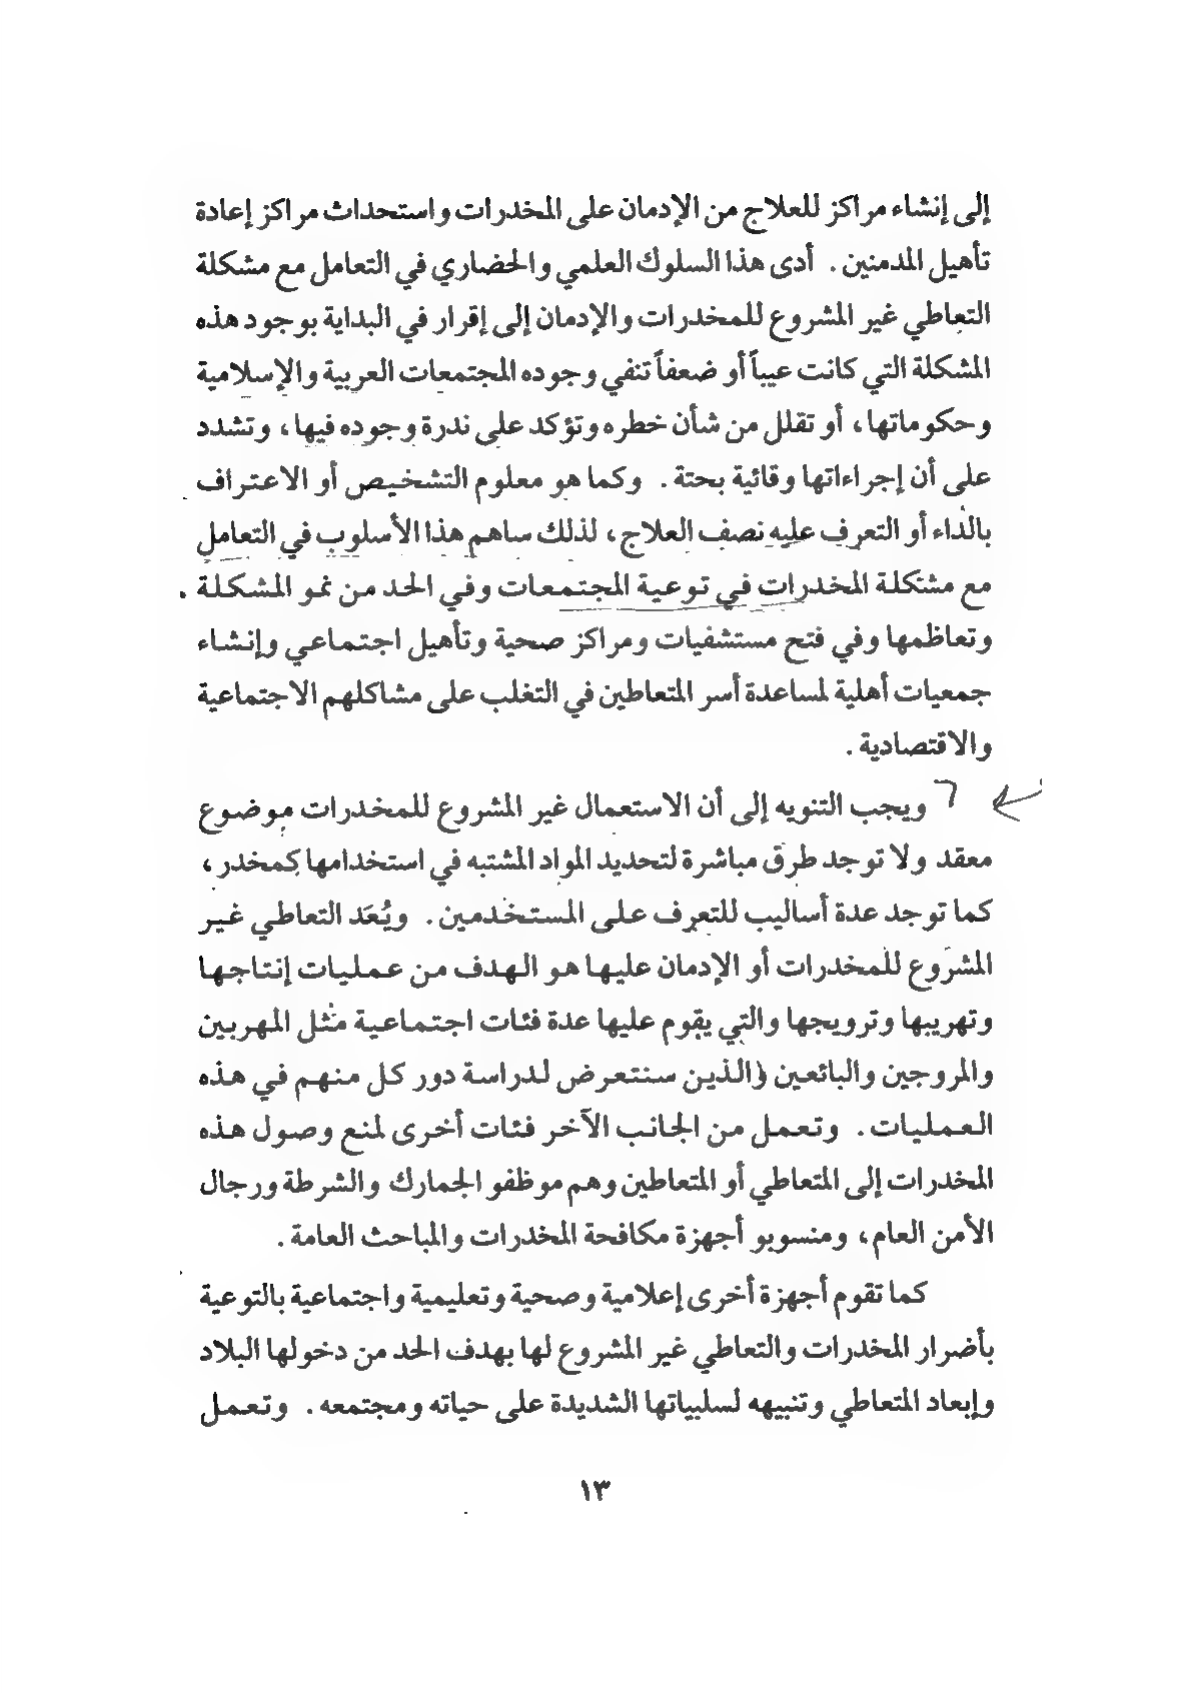 إلى إنشاء مراكز للعلاج من الإدمان على المخدرات واستحداث مراكز إعادة
تأهيل المدمنين. أدى هذا السلوك العلمي والحضاري في التعامل مع مشكلة
التعاطي غير المشروع للمخدرات والإدمان إلى إقرار في البداية بوجود هذه
المشكلة التي كانت عيباً أو ضعفاً تنفي وجوده المجتمعات العربية والإسلامية
وحكوماتها، أو تقلل من شأن خطره وتؤكد على ندرة وجوده فيها، وتشدد
على أن إجراءاتها وقائية بحتة. وكما هو معلوم التشخيص أو الاعتراف
بالداء أو التعرف عليه نصف العلاج، لذلك ساهم هذا الأسلوب في التعامل
مع مشكلة المخدرات في توعية المجتمعات وفي الحد من نمو المشكلة
وتعاظمها وفي فتح مستشفيات ومراكز صحية وتأهيل اجتماعي وإنشاء
جمعيات أهلية لمساعدة أسر المتعاطين في التغلب على مشاكلهم الاجتماعية
والاقتصادية.
ويجب التنويه إلى أن الاستعمال غير المشروع للمخدرات موضوع
معقد ولا توجد طرق مباشرة لتحديد المواد المشتبه في استخدامها كمخدر،
كما توجد عدة أساليب للتعرف على المستخدمين. ويُعَد التعاطي غير
المشروع للمخدرات أو الإدمان عليها هو الهدف من عمليات إنتاجها
وتهريبها وترويجها والتي يقوم عليها عدة فئات اجتماعية مثل المهربين
والمروجين والبائعين (الذين سنتعرض لدراسة دور كل منهم في هذه
العمليات. وتعمل من الجانب الآخر فئات أخرى لمنع وصول هذه
المخدرات إلى المتعاطي أو المتعاطين وهم موظفو الجمارك والشرطة ورجال
الأمن العام، ومنسوبو أجهزة مكافحة المخدرات والمباحث العامة.
كما تقوم أجهزة أخرى إعلامية وصحية وتعليمية واجتماعية بالتوعية
بأضرار المخدرات والتعاطي غير المشروع لها بهدف الحد من دخولها البلاد
وإبعاد المتعاطي وتنبيهه لسلبياتها الشديدة على حياته ومجتمعه. وتعمل
١٣